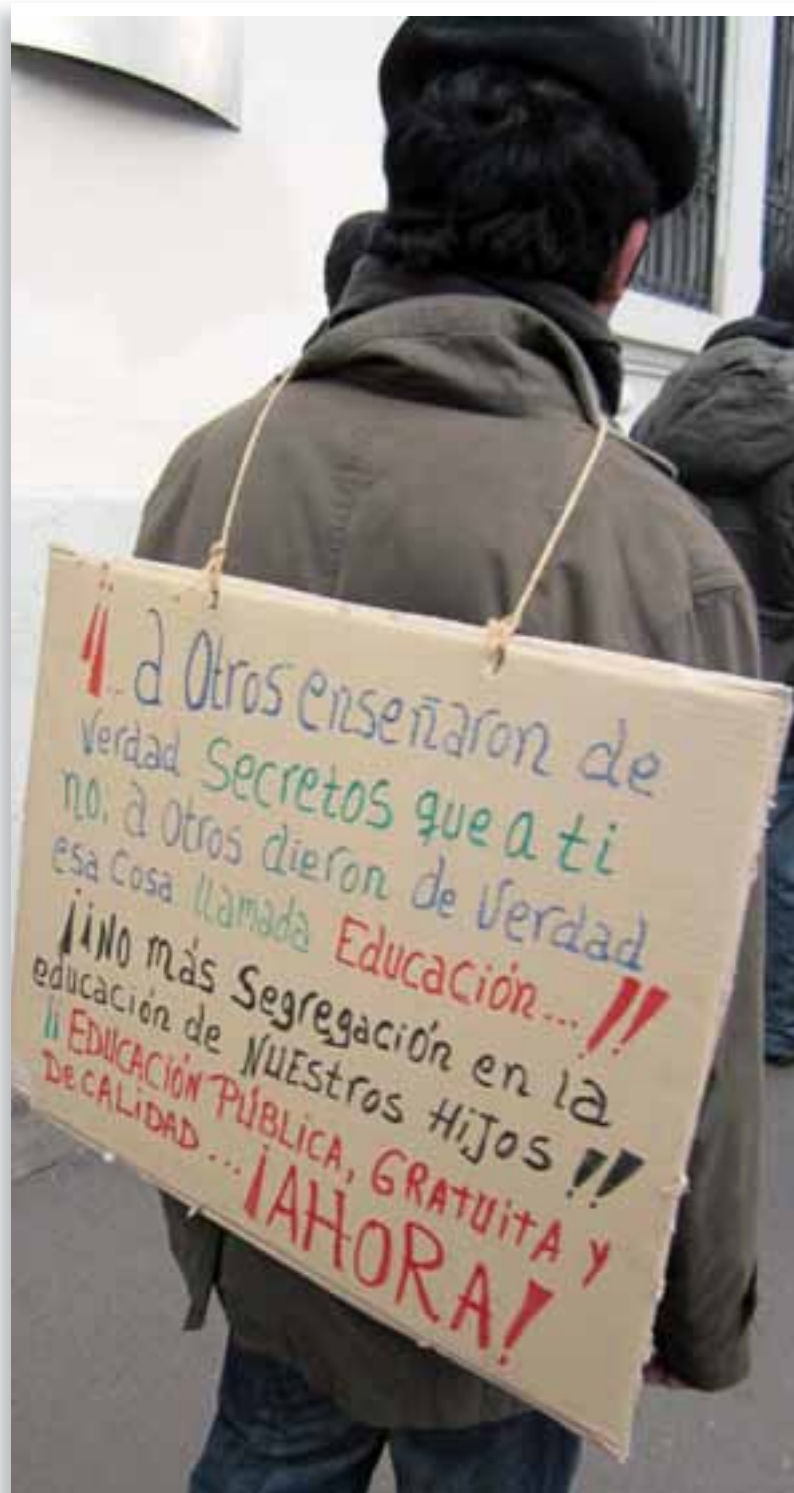 ¡¡... a Otros enseñaron de
verdad Secretos que a ti
no. a otros dieron de verdad
esa cosa llamada Educación...!!
¡¡No más Segregación en la
educación de NUEstros HiJos!!
¡¡EDUCACIÓN PÚBLICA, GRATUITA Y
DeCALIDAD... ¡AHORA!